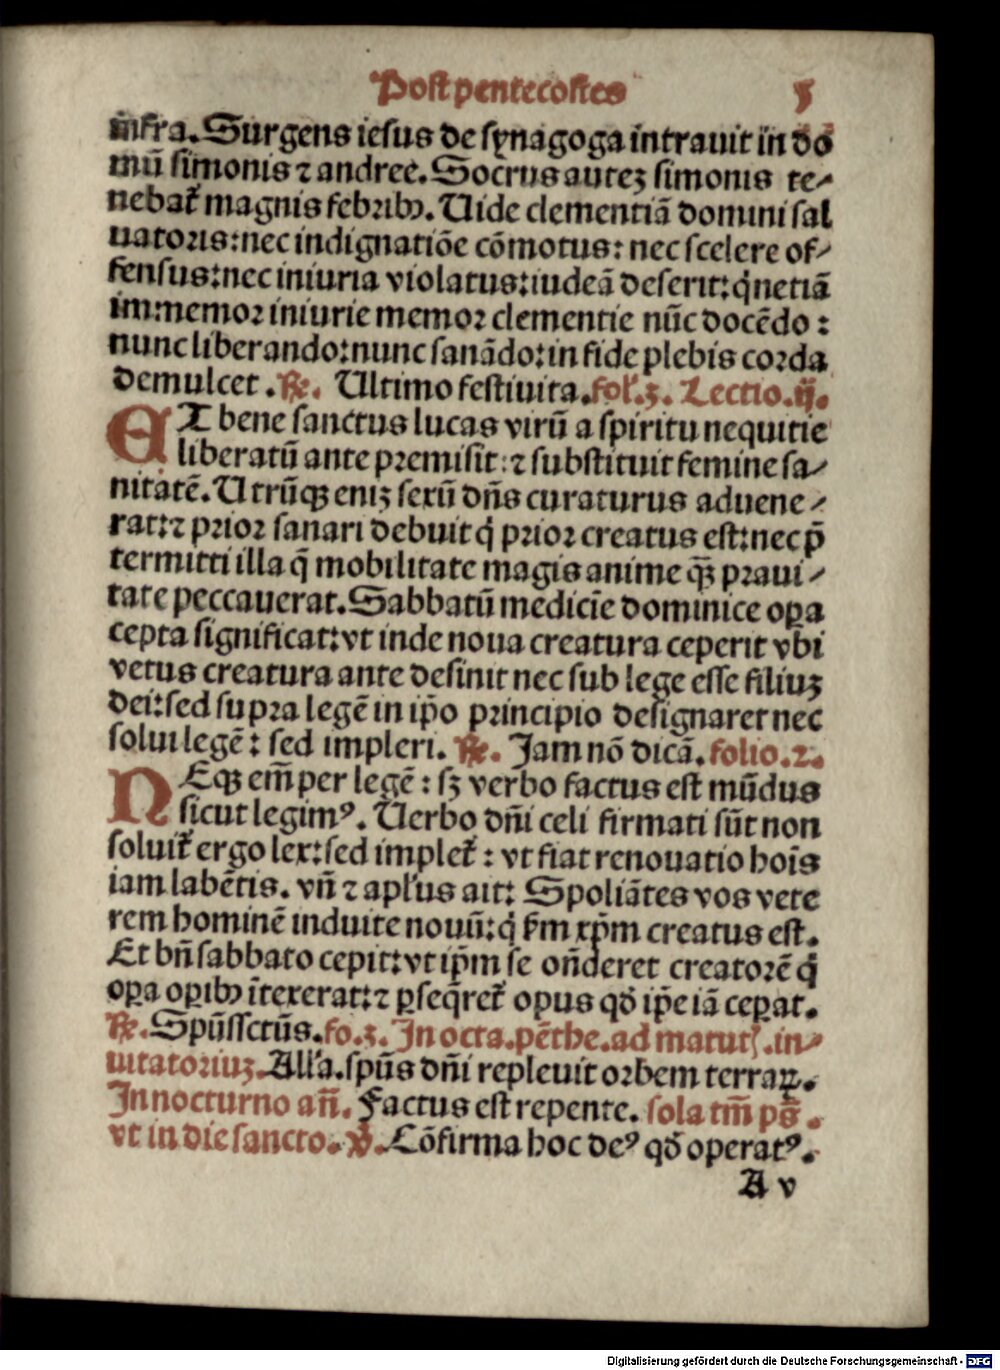 Post pentecostes 5
infra. Surgens iesus de synagoga intrauit in do
mū simonis ⁊ andree. Socrus auteꝫ simonis te⸗
nebat᷑ magnis febribꝰ. Uide clementiā domini sal
uatoris: nec indignatiōe cōmotus: nec scelere of⸗
fensus: nec iniuria violatus: iudeā deserit: qͥnetiā
immemor iniurie memor clementie nūc docēdo :
nunc liberando: nunc sanādo: in fide plebis corda
demulcet . ℞. Ultimo festiuita. fol. 3. Lectio .ij.
ET bene sanctus lucas virū a spiritu nequitie
liberatū ante premisit: ⁊ substituit femine sa⸗
nitatē. Utrūqꝫ eniꝫ sexū dn̄s curaturus aduene⸗
rat: ⁊ prior sanari debuit qͥ prior creatus est: nec p̄
termitti illa q̄ mobilitate magis anime qꝫ praui⸗
tate peccauerat. Sabbatū medicīe dominice oꝑa
cepta significat: vt inde noua creatura ceperit vbi
vetus creatura ante desinit nec sub lege esse filiuꝫ
dei: sed supra legē in ip̄o principio designaret nec
solui legē: sed impleri. ℞. Jam nō dicā. folio. 2.
NEqꝫ em̄ per legē: sꝫ verbo factus est mūdus
sicut legimꝰ. Uerbo dn̄i celi firmati sūt non
soluit᷑ ergo lex: sed implet᷑: vt fiat renouatio hoīs
iam labētis. vn̄ ⁊ apl'us ait: Spoliātes vos vete
rem hominē induite nouū: qͥ ẜm xp̄m creatus est.
Et bn̄ sabbato cepit: vt ip̄m se on̄deret creatorē qͥ
oꝑa oꝑibꝰ ītexerat: ⁊ ꝑseq̄ret᷑ opus qđ ip̄e iā ceꝑat.
℞. Spūssctūs. fo. 3. In octa. pēthe. ad matut. in⸗
uitatoriuꝫ. All'a. spūs dn̄i repleuit orbem terraꝝ.
In nocturno an̄. Factus est repente. sola tm̄ ps̄ .
vt in die sancto. ℣. Cōfirma hoc deꝰ qđ operatꝰ.
A v
Digitalisierung gefördert durch die Deutsche Forschungsgemeinschaft - DFG